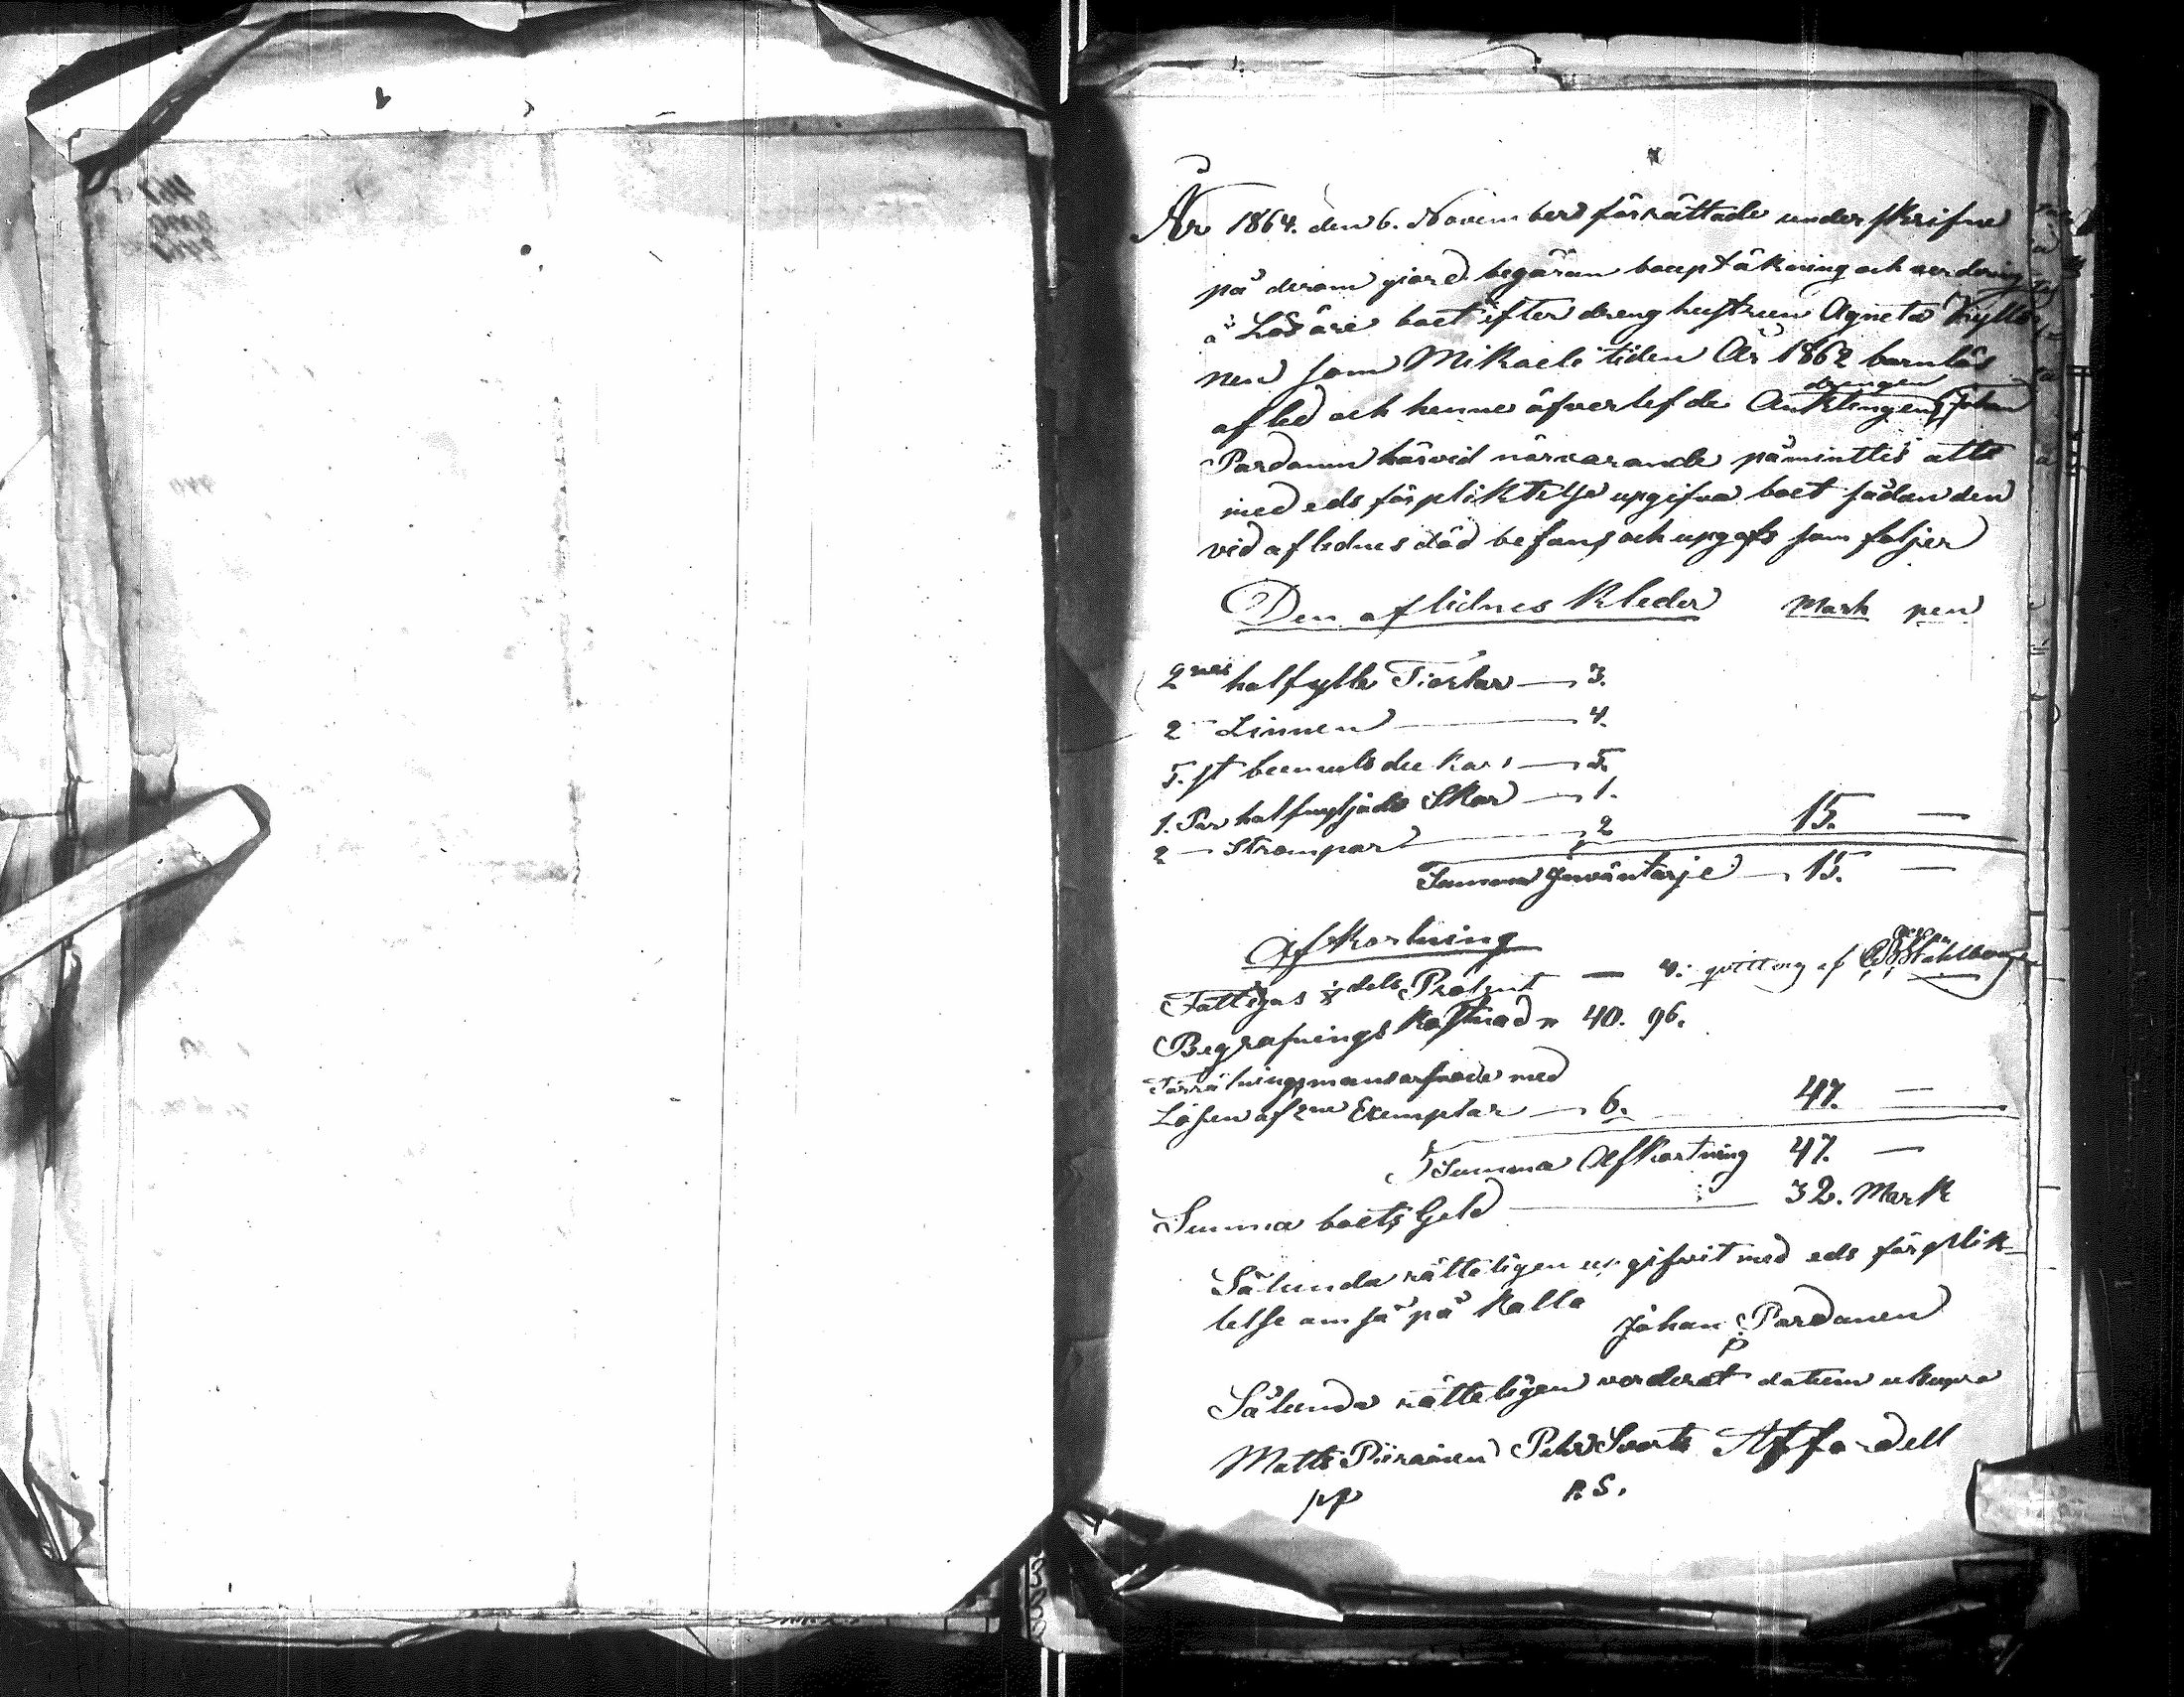 År 1864. den 6. November förrättade underskrifne
på derom giord begäran bouptäkning och verdering
å Lösöre boet efter drenghustrun Agneta Kyllö
nen som Mikaeli tiden År 1862 barnlös
afled och henne öfverlefde Anklingen drengen Johan
Pardanen härvid närvarande påminttes att
med eds förpliktelse upgifva boet sådan den
vid aflednes död befans och upgafs som följer
Den aflidnes Kleder Mark pen
2 halfylle Tiortar — 3.
2 Linnen — 4.
5. st — 5.
1. Par Skor — 1.
2 — Strompar — 2 15. —
Summa Inväntarje — 15. —
Afkortning
Fattigas 1/8 dels Prosent — qvittering af Stahlberg
Begrafnings kostnad 40. 96.
Förrätningsmans arfvode med
Lösen af 2ne Exemplar — 6. 47. —
Summa Afkortning 47. —
Summa boets Geld — 32. Mark
Sålunda rätteligen upgifvit med eds förplik-
telse om så på kalla Johan Pardanen
Sålunda rätteligen verderat datum utsupra
Matts Piirainen Pehr Svarts
P. S.